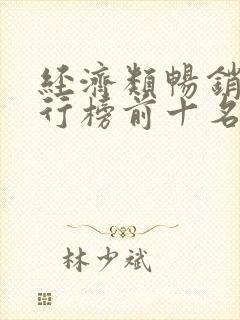 經濟類暢銷
行榜前十名
林少斌